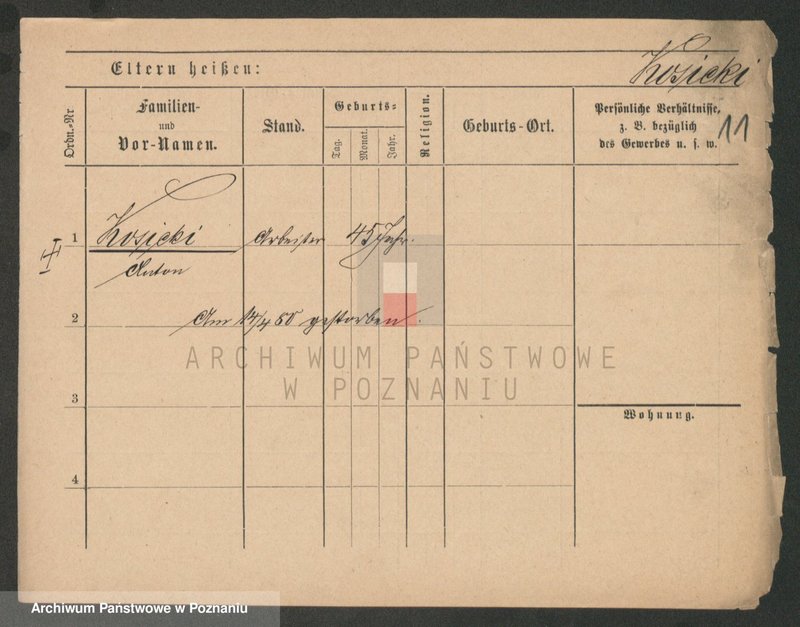 Kosicki
Eltern heißen:
11
Ordn.-Nr
Familien-
und
Vor-Namen.
Stand.
Geburts-
Tag.
Monat.
Jahr.
Religion.
Geburts-Ort.
Persönliche Verhältnisse,
z. B. bezüglich
des Gewerbes u. s. w.
1
Kosicki
Arbeiter
45 Jahr.
Anton
2
Am 14/4 80 gestorben.
ARCHIWUM PAŃSTWOWE
W POZNANIU
3
Wohnung.
4
Archiwum Państwowe w Poznaniu